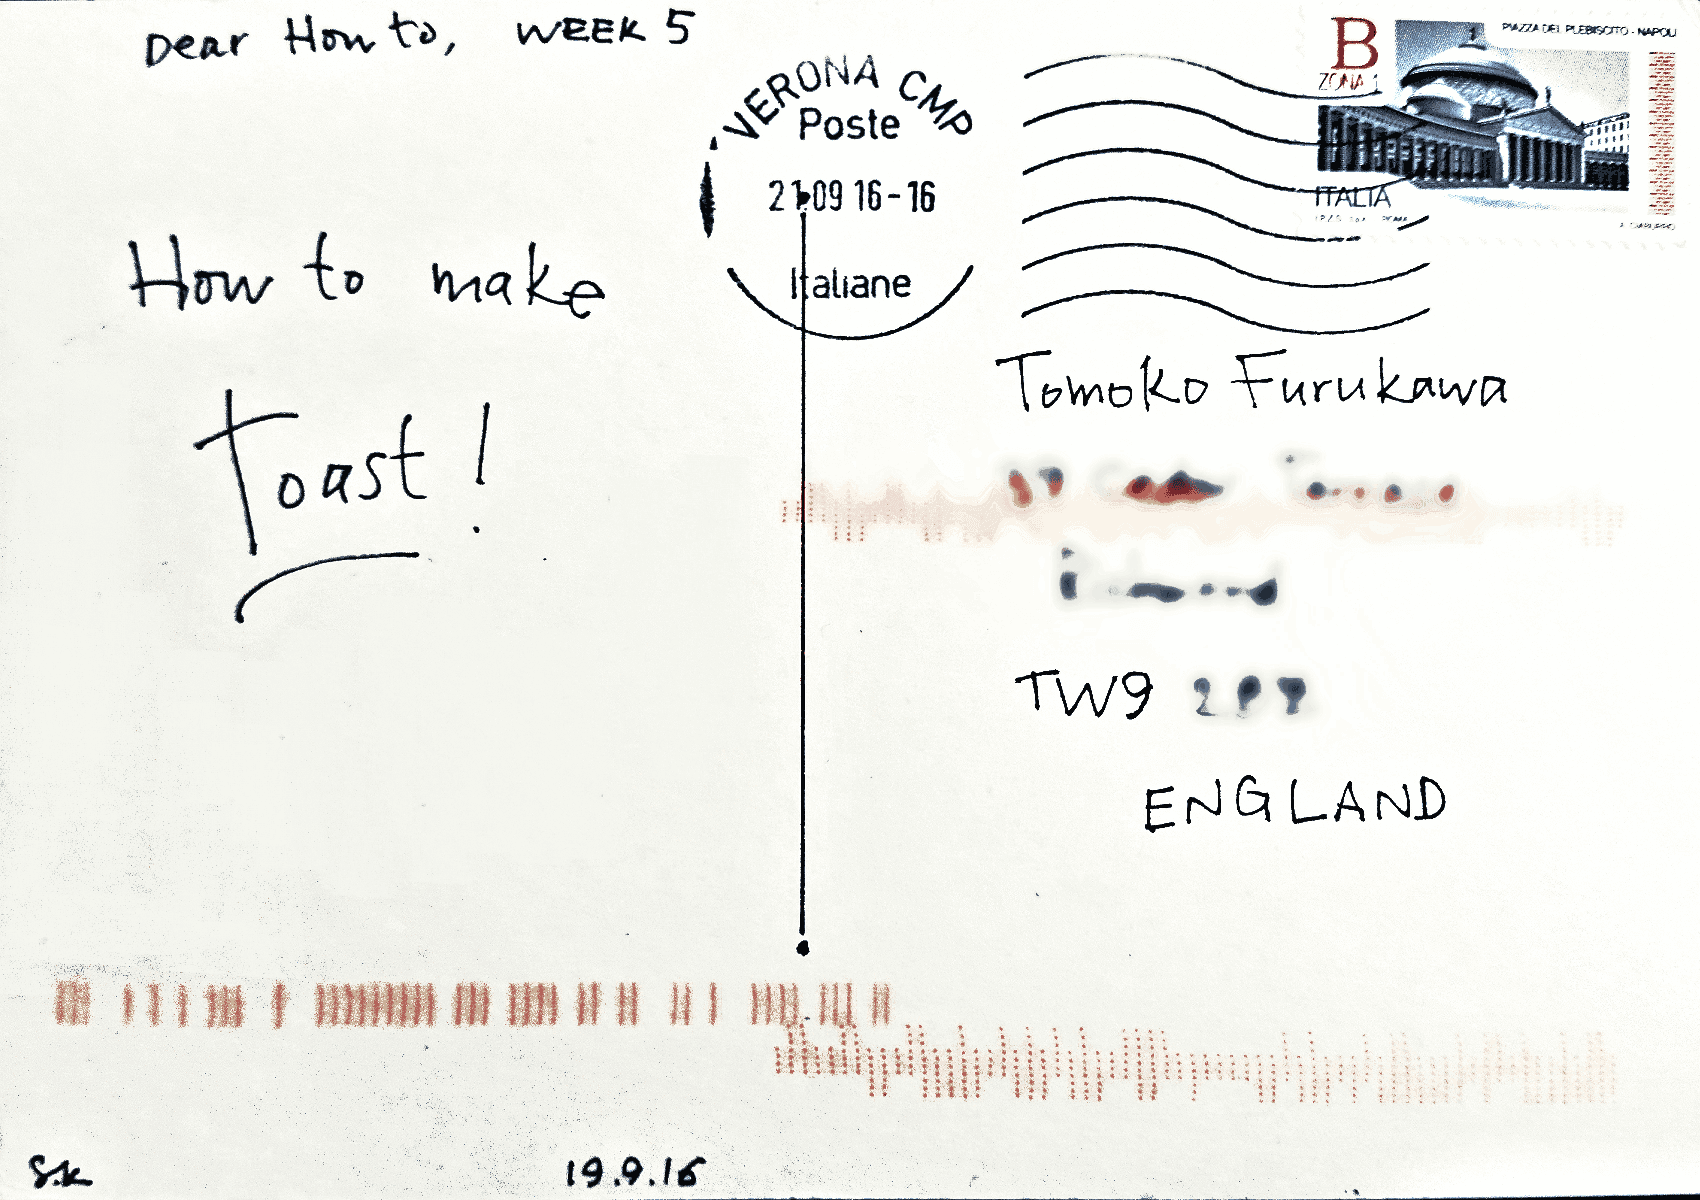 Dear How to, WEEK 5
How to make
Toast!
S.K
19.9.16
VERONA CMP
Poste
21 09 16-16
Italiane
B
ZONA 1
PIAZZA DEL PLEBISCITO - NAPOLI
ITALIA
Tomoko Furukawa
TW9
ENGLAND